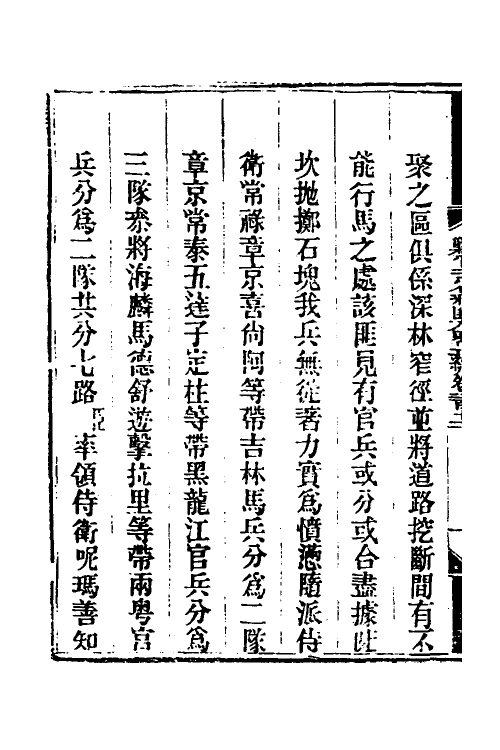 聚之區俱係深林窄徑並將道路挖斷間有不
能行馬之處該匪見有官兵或分或合盡據陡
坎拋擲石塊我兵無從著力實爲憤懣隨派侍
衛常祿章京喜尙阿等帶吉林馬兵分爲二隊
章京常泰五達子定柱等帶黑龍江官兵分爲
三隊叅將海麟馬德舒遊擊拉里等帶兩粵官
兵分爲二隊共分七路臣率領侍衛呢瑪善知